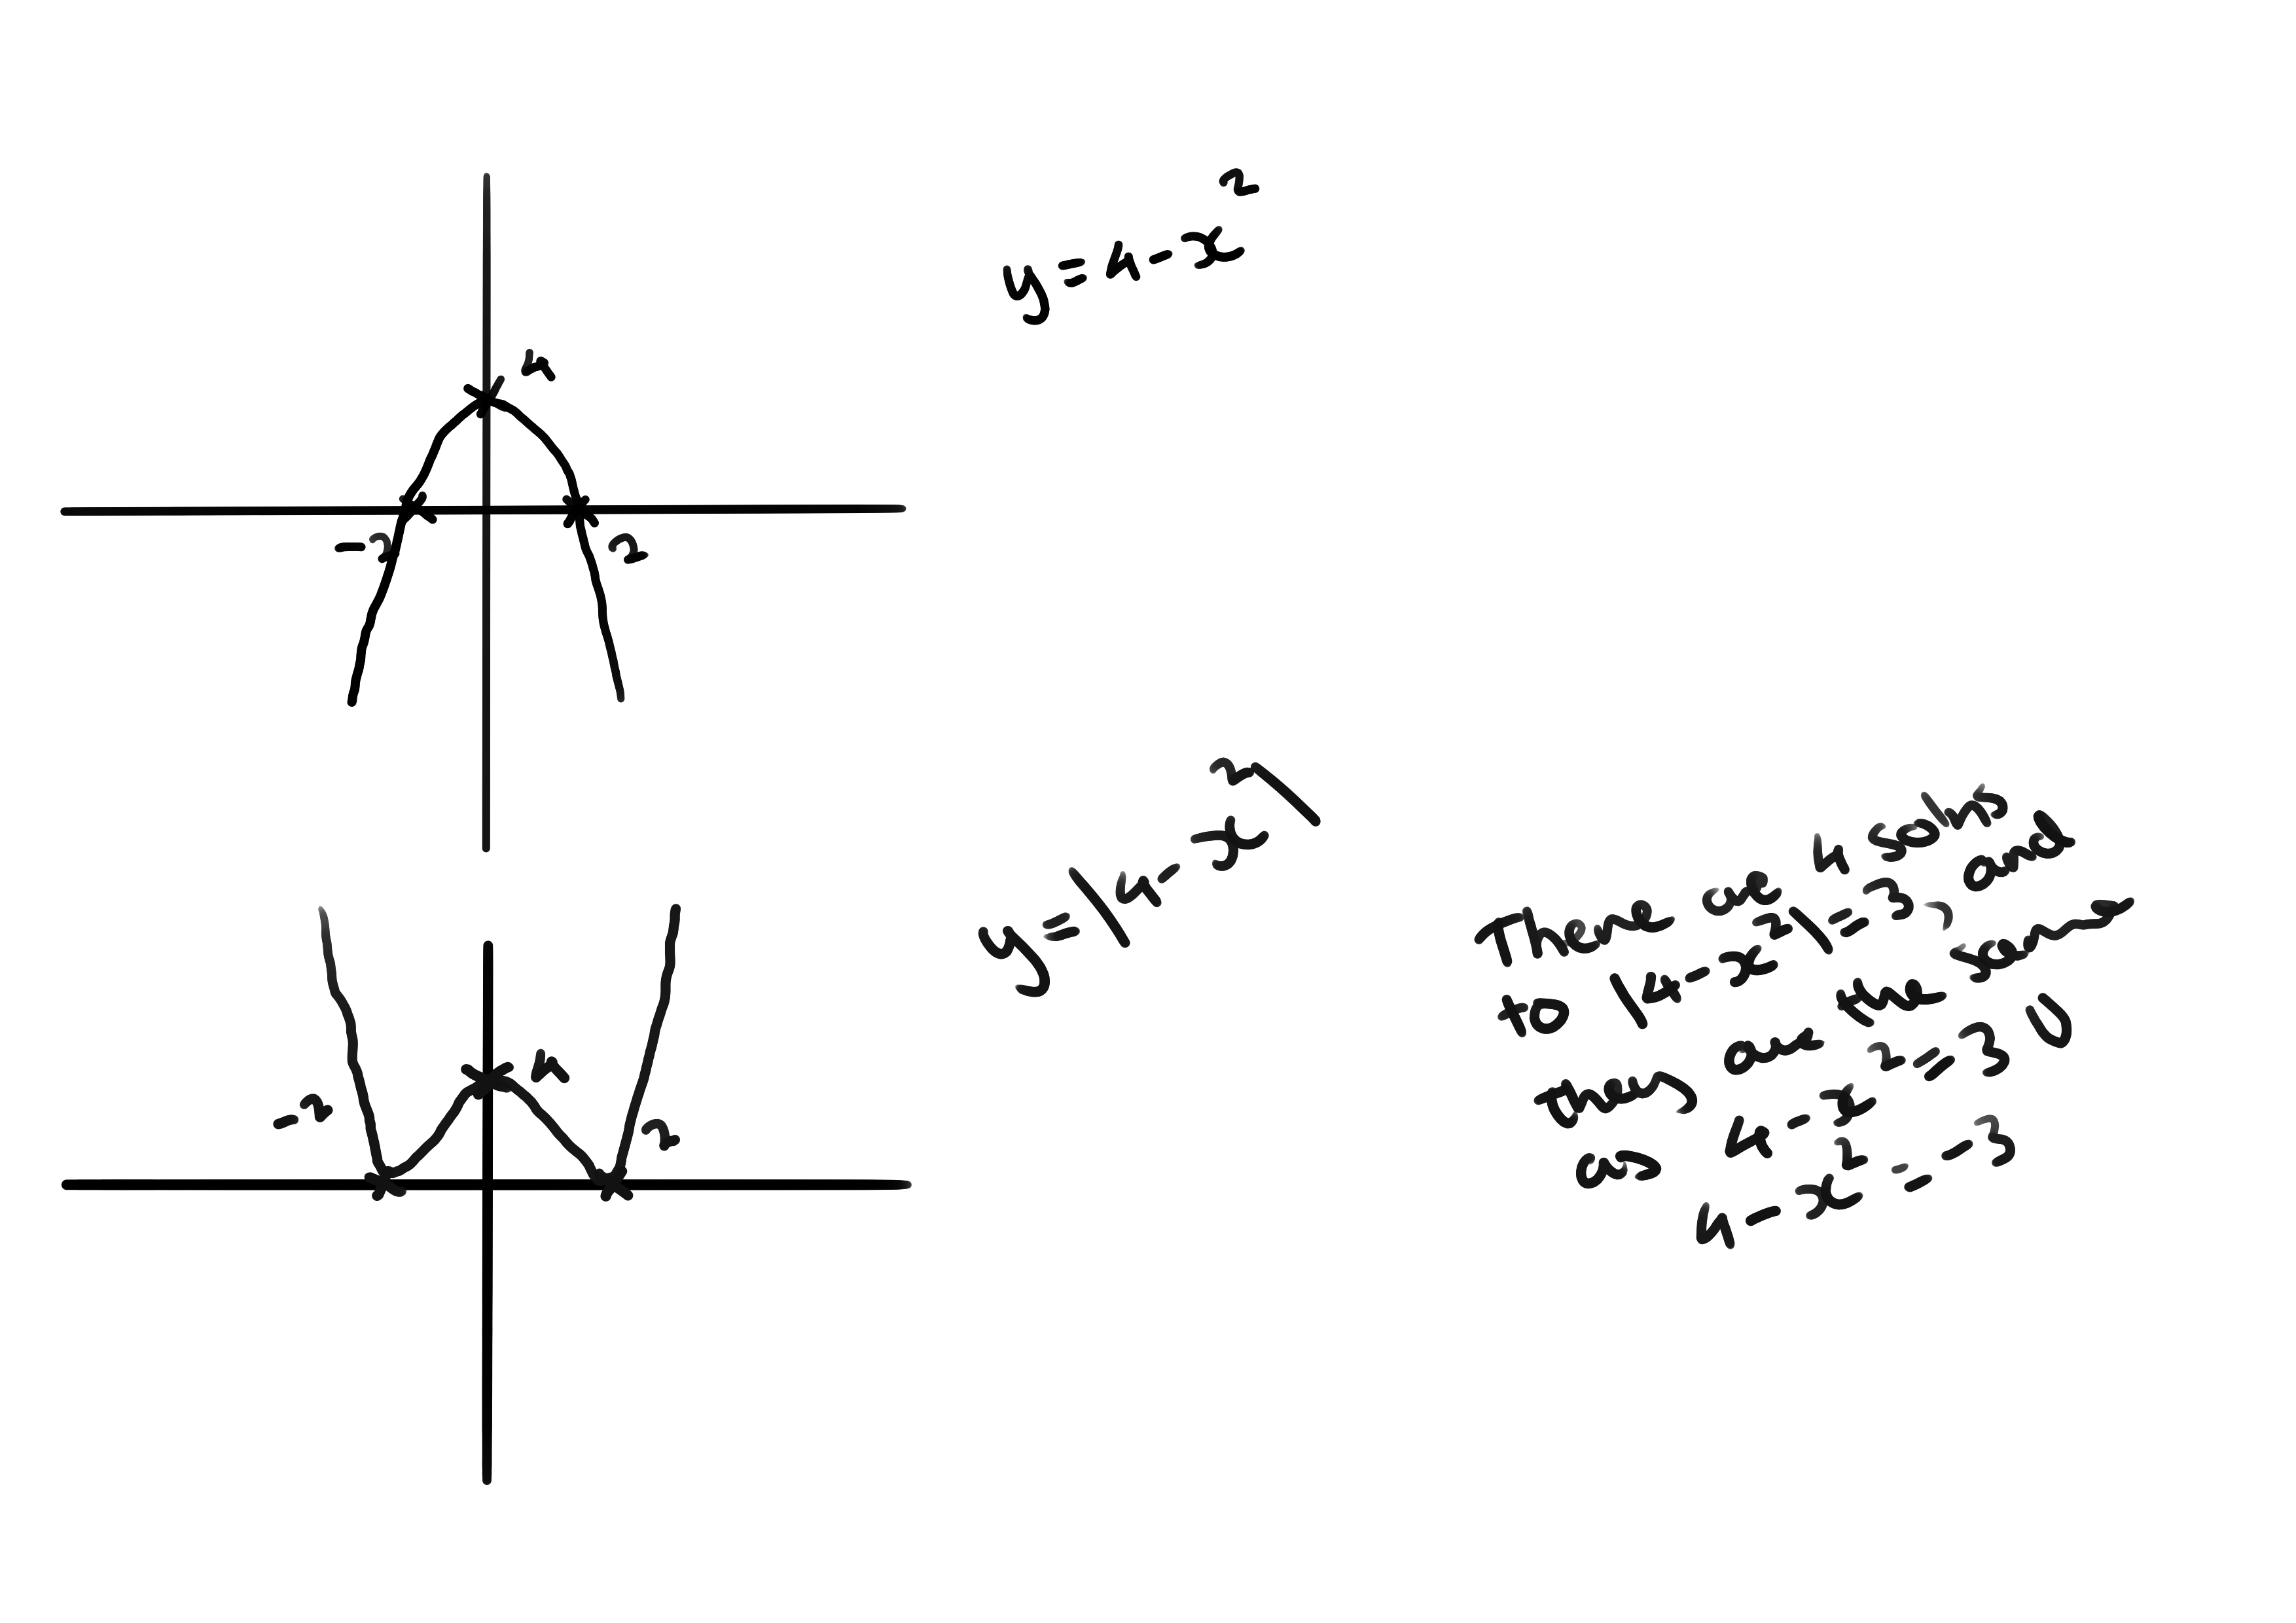 y = 4 - x²
4
-2
2
y = |4 - x²|
4
-2
2
There are 4 solns
to |4 - x²| = 3, and
they are the same
as 4 - x² = 3 U
4 - x² = -3